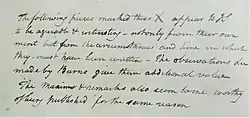 The following pieces marked thus X appear to J
to be agreeable & interesting – not only from their own
merit but from the circumstances and time in which
they must have been written – The observations &c
made by Burns give them additional value
The Maxims & remarks also seem to me worthy
of being published for the same reason